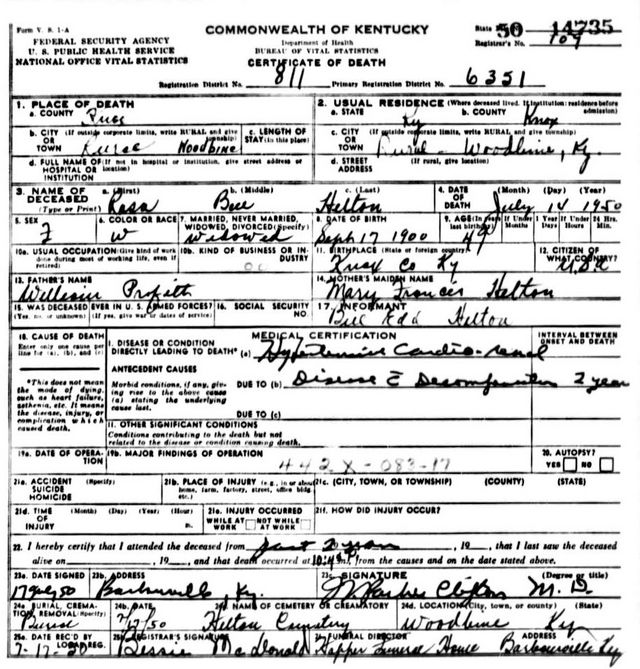 Form V. S. 1-A
COMMONWEALTH OF KENTUCKY
State 50 14735
FEDERAL SECURITY AGENCY
Department of Health
Registrar's No. 109
U. S. PUBLIC HEALTH SERVICE
BUREAU OF VITAL STATISTICS
NATIONAL OFFICE VITAL STATISTICS
CERTIFICATE OF DEATH
Registration District No. 811 Primary Registration District No. 6351
1. PLACE OF DEATH
a. COUNTY
2. USUAL RESIDENCE (Where deceased lived. If institution: residence before admission)
a. STATE Ky b. COUNTY Knox
b. CITY (If outside corporate limits, write RURAL and give township)
OR
TOWN Woodbine
c. LENGTH OF STAY (in this place)
c. CITY (If outside corporate limits, write RURAL and give township)
OR
TOWN Rural - Woodbine, Ky.
d. FULL NAME OF (If not in hospital or institution, give street address or location)
HOSPITAL OR
INSTITUTION
d. STREET (If rural, give location)
ADDRESS
3. NAME OF DECEASED (Type or Print)
a. (First) Rosa b. (Middle) Bell c. (Last) Helton
4. DATE OF DEATH (Month) (Day) (Year)
July 14 1950
5. SEX F
6. COLOR OR RACE W
7. MARRIED, NEVER MARRIED, WIDOWED, DIVORCED (Specify)
Widowed
8. DATE OF BIRTH
Sept 17 1900
9. AGE (In years last birthday) 49
If Under 1 Year
Months Days
If Under 24 Hrs.
Hours Min.
10a. USUAL OCCUPATION (Give kind of work done during most of working life, even if retired)
10b. KIND OF BUSINESS OR INDUSTRY
11. BIRTHPLACE (State or foreign country)
Knox Co Ky
12. CITIZEN OF WHAT COUNTRY?
USA
13. FATHER'S NAME
William
14. MOTHER'S MAIDEN NAME
Mary Frances Helton
15. WAS DECEASED EVER IN U. S. ARMED FORCES?
(Yes, no, or unknown) (If yes, give war or dates of service)
16. SOCIAL SECURITY NO.
17. INFORMANT
Helton
18. CAUSE OF DEATH
Enter only one cause per line for (a), (b), and (c)
MEDICAL CERTIFICATION
INTERVAL BETWEEN ONSET AND DEATH
I. DISEASE OR CONDITION
DIRECTLY LEADING TO DEATH* (a) Hypertensive Cardio-renal
*This does not mean the mode of dying, such as heart failure, asthenia, etc. It means the disease, injury, or complication which caused death.
ANTECEDENT CAUSES
Morbid conditions, if any, giving rise to the above cause (a) stating the underlying cause last.
DUE TO (b) Disease c̄ Decompensation 2 year
DUE TO (c)
II. OTHER SIGNIFICANT CONDITIONS
Conditions contributing to the death but not related to the disease or condition causing death.
19a. DATE OF OPERATION
19b. MAJOR FINDINGS OF OPERATION
442X-083-17
20. AUTOPSY?
YES NO
21a. ACCIDENT (Specify)
SUICIDE
HOMICIDE
21b. PLACE OF INJURY (e.g., in or about home, farm, factory, street, office bldg. etc.)
21c. (CITY, TOWN, OR TOWNSHIP) (COUNTY) (STATE)
21d. TIME OF INJURY (Month) (Day) (Year) (Hour)
21e. INJURY OCCURRED
WHILE AT WORK NOT WHILE AT WORK
21f. HOW DID INJURY OCCUR?
22. I hereby certify that I attended the deceased from past 2 years, 19__, that I last saw the deceased
alive on , 19__, and that death occurred at m., from the causes and on the date stated above.
23a. DATE SIGNED
23b. ADDRESS
Barbourville, Ky.
23c. SIGNATURE (Degree or title)
Clifton M. D.
24a. BURIAL, CREMATION, REMOVAL (Specify)
Burial
24b. DATE
7/17/50
24c. NAME OF CEMETERY OR CREMATORY
Helton Cemetery
24d. LOCATION (City, town, or county) (State)
Woodbine Ky
25a. DATE REC'D BY LOCAL REG.
7-17-50
25b. REGISTRAR'S SIGNATURE
Bessie MacDonald
26. FUNERAL DIRECTOR ADDRESS
Hopper Funeral Home Barbourville Ky